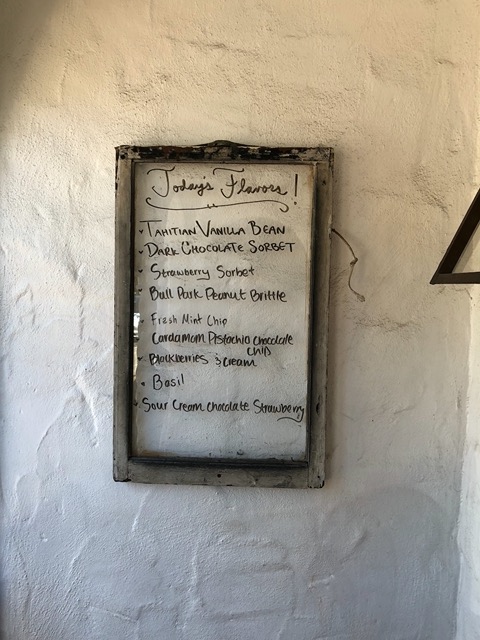 Today's Flavors!
TAHITIAN VANILLA BEAN
DARK CHOCOLATE SORBET
Strawberry Sorbet
Ball Park Peanut Brittle
Fresh Mint Chip
Cardamom Pistachio Chocolate
Chip
Blackberries & Cream
Basil
Sour Cream Chocolate Strawberry